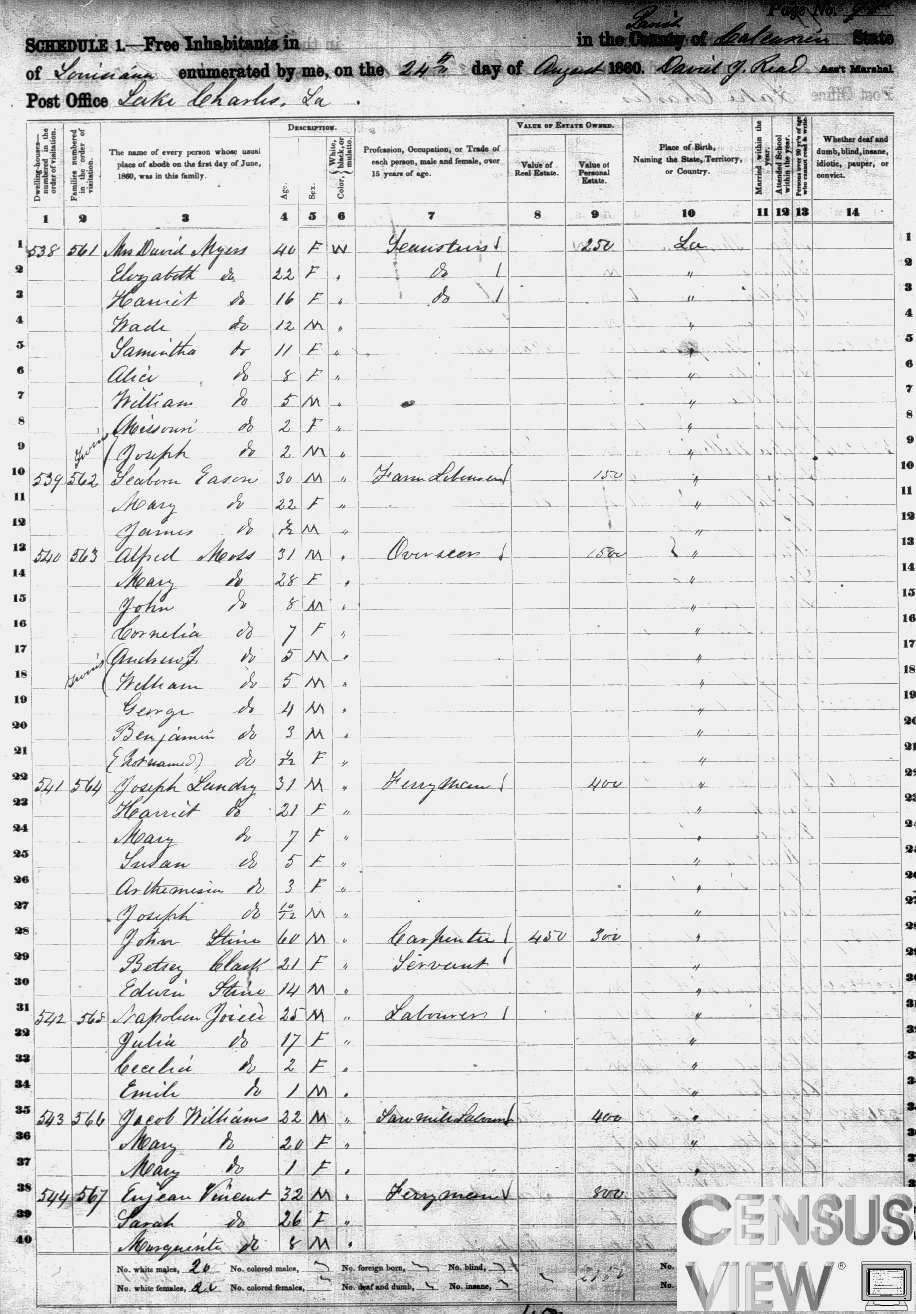 Page No.
SCHEDULE 1.—Free Inhabitants in in the Parish County of Calcasieu State
of Louisiana enumerated by me, on the 24th day of August 1860. David J. Read Ass't Marshal.
Post Office Lake Charles, La.
Dwelling-houses—numbered in the order of visitation.
Families numbered in the order of visitation.
The name of every person whose usual place of abode on the first day of June, 1860, was in this family.
DESCRIPTION.
Age.
Sex.
Color, White, black, or mulatto.
Profession, Occupation, or Trade of each person, male and female, over 15 years of age.
VALUE OF ESTATE OWNED.
Value of Real Estate.
Value of Personal Estate.
Place of Birth, Naming the State, Territory, or Country.
Married within the year.
Attended School within the year.
Persons over 20 y'rs of age who cannot read & write.
Whether deaf and dumb, blind, insane, idiotic, pauper, or convict.
1 2 3 4 5 6 7 8 9 10 11 12 13 14
1 538 561 Mrs David Myers 40 F W Seamstress 250 La 1
2 Elizabeth do 22 F " do " 2
3 Harriet do 16 F " do " 3
4 Wade do 12 M " " 4
5 Samintha do 11 F " " 5
6 Alice do 8 F " " 6
7 William do 5 M " " 7
8 Missouri do 2 F " " 8
9 Twins Joseph do 2 M " " 9
10 539 562 Seaborn Eason 30 M " Farm Labourer 150 " 10
11 Mary do 22 F " " 11
12 James do M " " 12
13 540 563 Alfred Moss 31 M " Overseer 1500 " 13
14 Mary do 28 F " " 14
15 John do 8 M " " 15
16 Cornelia do 7 F " " 16
17 Andrew J. do 5 M " " 17
18 Twins William do 5 M " " 18
19 George do 4 M " " 19
20 Benjamin do 3 M " " 20
21 (Not named) do F " " 21
22 541 564 Joseph Landry 31 M " Ferryman 400 " 22
23 Harriet do 21 F " " 23
24 Mary do 7 F " " 24
25 Susan do 5 F " " 25
26 Arthemisia do 3 F " " 26
27 Joseph do 10/12 M " " 27
28 John Stine 60 M " Carpenter 450 300 " 28
29 Betsey Clark 21 F " Servant " 29
30 Edwin Stine 14 M " " 30
31 542 565 Napoleon 25 M " Labourer " 31
32 Julia do 17 F " " 32
33 Cecelia do 2 F " " 33
34 Emile do 1 M " " 34
35 543 566 Jacob Williams 22 M " Saw mill Labourer 400 " 35
36 Mary do 20 F " " 36
37 Mary do 1 F " " 37
38 544 567 Enjean Vincent 32 M " Ferryman 800 "
39 Sarah do 26 F "
40 Marguerite do 8 M "
No. white males, 20 No. colored males, No. foreign born, No. blind, No.
No. white females, No. colored females, No. deaf and dumb, No. insane, No.
CENSUS
VIEW®